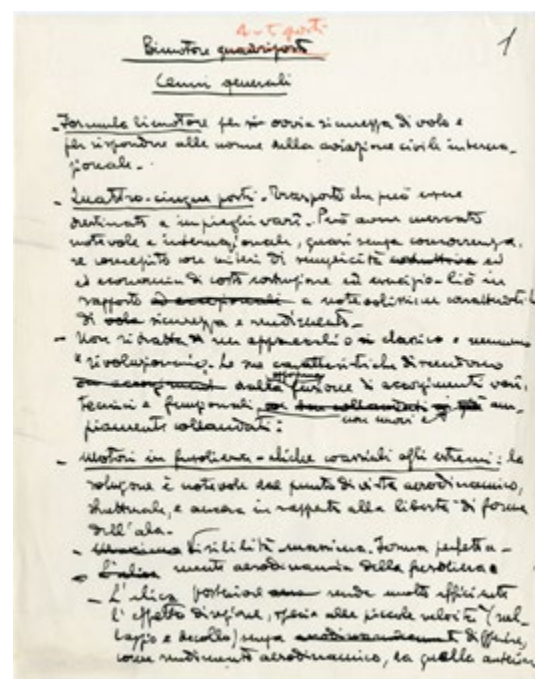 4-5 posti
1
Bimotore quadriposto
Cenni generali
- Formula bimotore per ovvia sicurezza di volo e
per rispondere alle norme sulla aviazione civile interna-
zionale -
- Quattro-cinque posti - Trasporto che può essere
destinato a impieghi varî. Può avere mercato
notevole e internazionale, quasi senza concorrenza,
se concepito con criteri di semplicità costruttiva ed
ed economia di costo costruzione ed esercizio - Ciò in
rapporto ad eccezionali a notevolissime caratteristi
di volo sicurezza e rendimento -
- Non si tratta di un apparecchio nè classico e nemmeno
"rivoluzionario. Le sue caratteristiche discendono
dalla fusione di accorgimenti varî,
tecnici e funzionali, non nuovi e am-
piamente collaudati:
- Motori in fusoliera - eliche coassiali agli estremi: la
soluzione è notevole dal punto di vista aerodinamico,
strutturale, e ancora in rapporto alla libertà di forma
dell'ala.
- Visibilità massima. Forma perfetta -
- L'elica mente aerodinamica della fusoliera
- L'elica posteriore rende molto efficiente
l'effetto di regione, specie alle piccole velocità (rul-
laggio e decollo) senza differire,
come rendimento aerodinamico, da quella anterior